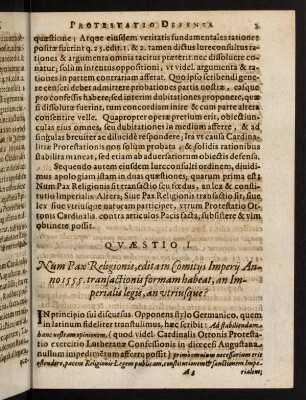 PROTESTATIO DEFENSA 3
quæstione; Atque eiusdem veritatis fundamentales rationes
positæ fuerint q. 25. edit. 1. & 2. tamen dictus Iureconsultus ra-
tiones & argumenta omnia tacitus præterit nec dissoluere co-
natur; solùm intentus oppositioni; vt videl. argumenta & ra-
tiones in partem contrariam afferat. Quo ipso scribendi gene-
re censeri debet admittere probationes partis nostræ, easque
pro confessis habere; sed interim dubitationes proponere, quæ
si dissolutæ fuerint, tum concordiam inire & cum parte altera
consentire velle. Quapropter operæ pretium erit, obiectiun-
culas eius omnes, seu dubitationes in medium afferre, & ad
singulas breuiter ac dilucidè respondere, Ita vt causa Cardina-
litiæ Protestationis non solùm probata, & solidis rationibus
stabilita maneat, sed etiam ab aduersariorum obiectis defensa.
Sequendo autem eiusdem Iureconsulti ordinem, diuidi-
mus apologiam istam in duas quæstiones; quarum prima est:
Num Pax Religionis sit transactio seu fœdus, an lex & consti-
tutio Imperialis: Altera; Siue Pax Religionis transactio sit, siue
lex siue vtriusque naturam participet, vtrum Protestatio Ot-
tonis Cardinalis. contra articulos Pacis facta, subsistere & vim
obtinere possit.
QVÆSTIO I.
Num Pax Religionis, edita in Comitijs Imperij An-
no 1555. transactionis formam habeat, an Im-
perialis legis, an vtriusque?
IN principio sui discursus Opponens stylo Germanico, quem
in latinum fideliter transtulimus, hæc scribit: Ad stabiliendam
hanc nostram opinionem, (quod videl. Cardinalis Ottonis Protesta-
tio exercitio Lutheranæ Confessionis in diœcesi Augustana
nullum impedimentum afferre possit) primò omnium necessarium erit
ostendere, pacem Religionis Legem publicam, constitutionem & sanctionem Impe-
A 3 rialem;